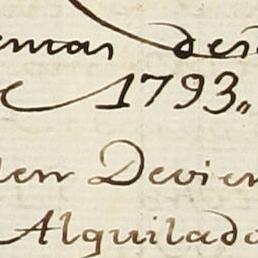 emas des
e 1793,,
en Devien
Alquilado